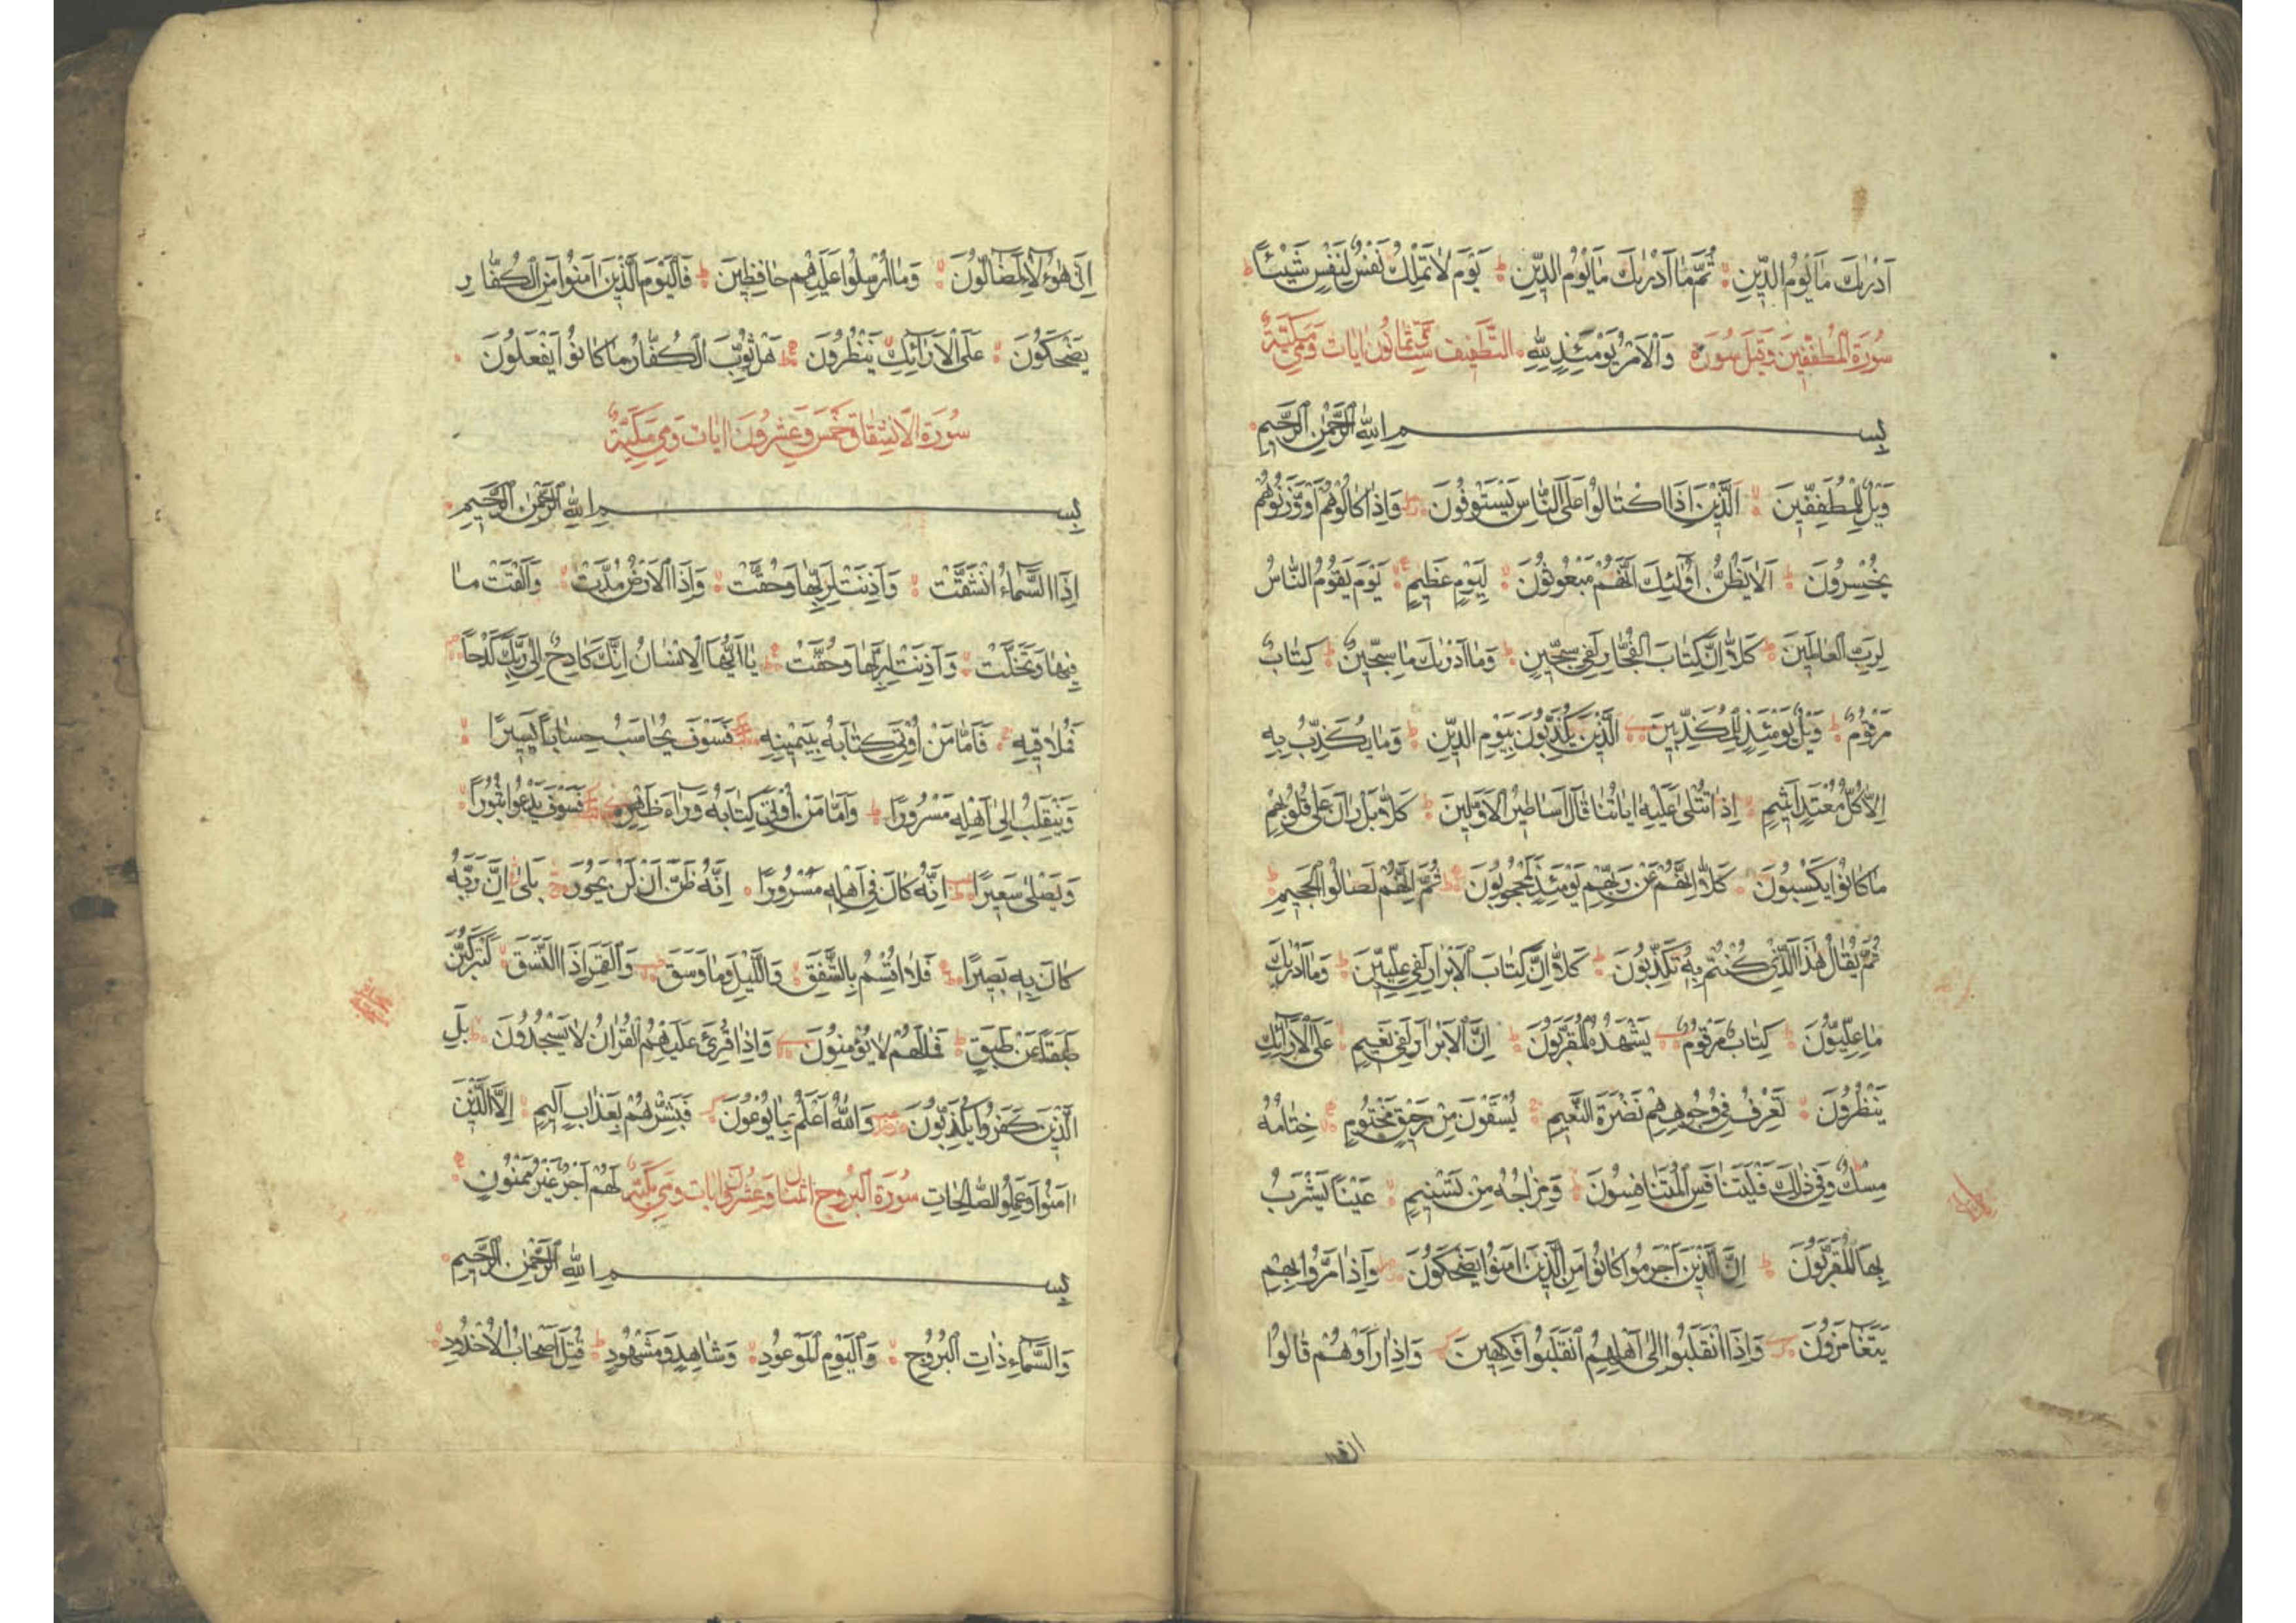 اَدْرٰىكَ مَا يَوْمُ الدِّينِ ثُمَّ مَا اَدْرٰىكَ مَا يَوْمُ الدِّينِ يَوْمَ لَا تَمْلِكُ نَفْسٌ لِنَفْسٍ شَيْئًا
سُورَةُ المُطَفِّفِينَ وَقِيلَ سُورَة وَالْاَمْرُ يَوْمَئِذٍ لِلّٰهِ التَّطْفِيف سِتٌّ ثَمَانُونَ اٰيَات وَهِيَ مَكِّيَّةٌ
بِسْمِ اللّٰهِ الرَّحْمٰنِ الرَّحِيمِ
وَيْلٌ لِلْمُطَفِّفِينَ اَلَّذِينَ اِذَا اكْتَالُوا عَلَى النَّاسِ يَسْتَوْفُونَ وَاِذَا كَالُوهُمْ اَوْ وَزَنُوهُمْ
يُخْسِرُونَ اَلَا يَظُنُّ اُولٰئِكَ اَنَّهُمْ مَبْعُوثُونَ لِيَوْمٍ عَظِيمٍ يَوْمَ يَقُومُ النَّاسُ
لِرَبِّ الْعَالَمِينَ كَلَّا اِنَّ كِتَابَ الْفُجَّارِ لَفِي سِجِّينٍ وَمَا اَدْرٰىكَ مَا سِجِّينٌ كِتَابٌ
مَرْقُومٌ وَيْلٌ يَوْمَئِذٍ لِلْمُكَذِّبِينَ الَّذِينَ يُكَذِّبُونَ بِيَوْمِ الدِّينِ وَمَا يُكَذِّبُ بِهِ
اِلَّا كُلُّ مُعْتَدٍ اَثِيمٍ اِذَا تُتْلٰى عَلَيْهِ اٰيَاتُنَا قَالَ اَسَاطِيرُ الْاَوَّلِينَ كَلَّا بَلْ رَانَ عَلٰى قُلُوبِهِمْ
مَا كَانُوا يَكْسِبُونَ كَلَّا اِنَّهُمْ عَنْ رَبِّهِمْ يَوْمَئِذٍ لَمَحْجُوبُونَ ثُمَّ اِنَّهُمْ لَصَالُوا الْجَحِيمِ
ثُمَّ يُقَالُ هٰذَا الَّذِي كُنْتُمْ بِهِ تُكَذِّبُونَ كَلَّا اِنَّ كِتَابَ الْاَبْرَارِ لَفِي عِلِّيِّينَ وَمَا اَدْرٰىكَ
مَا عِلِّيُّونَ كِتَابٌ مَرْقُومٌ يَشْهَدُهُ الْمُقَرَّبُونَ اِنَّ الْاَبْرَارَ لَفِي نَعِيمٍ عَلَى الْاَرَائِكِ
يَنْظُرُونَ تَعْرِفُ فِي وُجُوهِهِمْ نَضْرَةَ النَّعِيمِ يُسْقَوْنَ مِنْ رَحِيقٍ مَخْتُومٍ خِتَامُهُ
مِسْكٌ وَفِي ذٰلِكَ فَلْيَتَنَافَسِ الْمُتَنَافِسُونَ وَمِزَاجُهُ مِنْ تَسْنِيمٍ عَيْنًا يَشْرَبُ
بِهَا الْمُقَرَّبُونَ اِنَّ الَّذِينَ اَجْرَمُوا كَانُوا مِنَ الَّذِينَ اٰمَنُوا يَضْحَكُونَ وَاِذَا مَرُّوا بِهِمْ
يَتَغَامَزُونَ وَاِذَا انْقَلَبُوا اِلٰى اَهْلِهِمُ انْقَلَبُوا فَكِهِينَ وَاِذَا رَاَوْهُمْ قَالُوا
اِنَّ هٰؤُلَاءِ لَضَالُّونَ وَمَا اُرْسِلُوا عَلَيْهِمْ حَافِظِينَ فَالْيَوْمَ الَّذِينَ اٰمَنُوا مِنَ الْكُفَّارِ
يَضْحَكُونَ عَلَى الْاَرَائِكِ يَنْظُرُونَ هَلْ ثُوِّبَ الْكُفَّارُ مَا كَانُوا يَفْعَلُونَ
سُورَةُ الْاِنْشِقَاقِ خَمْسَ وَعِشْرُونَ اٰيَات وَهِيَ مَكِّيَّةٌ
بِسْمِ اللّٰهِ الرَّحْمٰنِ الرَّحِيمِ
اِذَا السَّمَاءُ انْشَقَّتْ وَاَذِنَتْ لِرَبِّهَا وَحُقَّتْ وَاِذَا الْاَرْضُ مُدَّتْ وَاَلْقَتْ مَا
فِيهَا وَتَخَلَّتْ وَاَذِنَتْ لِرَبِّهَا وَحُقَّتْ يَا اَيُّهَا الْاِنْسَانُ اِنَّكَ كَادِحٌ اِلٰى رَبِّكَ كَدْحًا
فَمُلَاقِيهِ فَاَمَّا مَنْ اُوتِيَ كِتَابَهُ بِيَمِينِهِ فَسَوْفَ يُحَاسَبُ حِسَابًا يَسِيرًا
وَيَنْقَلِبُ اِلٰى اَهْلِهِ مَسْرُورًا وَاَمَّا مَنْ اُوتِيَ كِتَابَهُ وَرَاءَ ظَهْرِهِ فَسَوْفَ يَدْعُوا ثُبُورًا
وَيَصْلٰى سَعِيرًا اِنَّهُ كَانَ فِي اَهْلِهِ مَسْرُورًا اِنَّهُ ظَنَّ اَنْ لَنْ يَحُورَ بَلٰى اِنَّ رَبَّهُ
كَانَ بِهِ بَصِيرًا فَلَا اُقْسِمُ بِالشَّفَقِ وَاللَّيْلِ وَمَا وَسَقَ وَالْقَمَرِ اِذَا اتَّسَقَ لَتَرْكَبُنَّ
طَبَقًا عَنْ طَبَقٍ فَمَا لَهُمْ لَا يُؤْمِنُونَ وَاِذَا قُرِئَ عَلَيْهِمُ الْقُرْاٰنُ لَا يَسْجُدُونَ بَلِ
الَّذِينَ كَفَرُوا يُكَذِّبُونَ وَاللّٰهُ اَعْلَمُ بِمَا يُوعُونَ فَبَشِّرْهُمْ بِعَذَابٍ اَلِيمٍ اِلَّا الَّذِينَ
اٰمَنُوا وَعَمِلُوا الصَّالِحَاتِ سُورَةُ الْبُرُوج اثْنَتَا وَعِشْرُونَ اٰيَات وَهِيَ مَكِّيَّةٌ لَهُمْ اَجْرٌ غَيْرُ مَمْنُونٍ
بِسْمِ اللّٰهِ الرَّحْمٰنِ الرَّحِيمِ
وَالسَّمَاءِ ذَاتِ الْبُرُوجِ وَالْيَوْمِ الْمَوْعُودِ وَشَاهِدٍ وَمَشْهُودٍ قُتِلَ اَصْحَابُ الْاُخْدُودِ